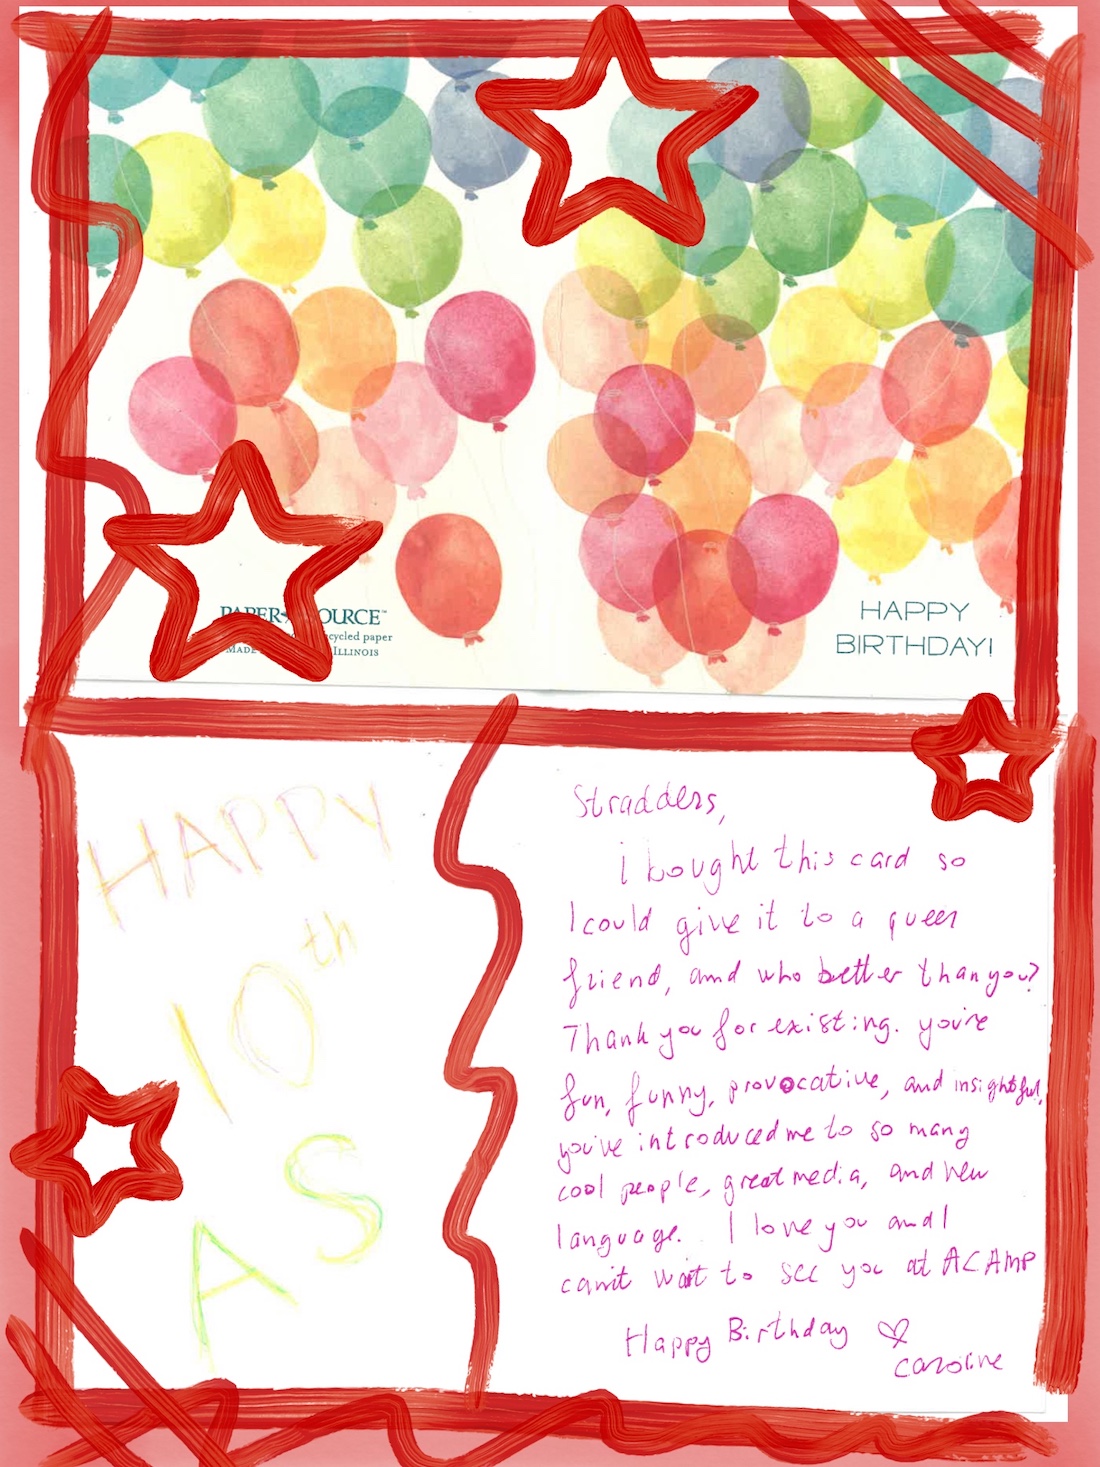 PAPER SOURCE™
cycled paper
MADE ILLINOIS
HAPPY
BIRTHDAY!
HAPPY
10th
AS
Stradders,
i bought this card so
I could give it to a queer
friend, and who better than you?
Thank you for existing. you're
fun, funny, provocative, and insightful,
you've introduced me to so many
cool people, great media, and new
language. I love you and I
can't wait to see you at ACAMP
Happy Birthday ♡
Caroline